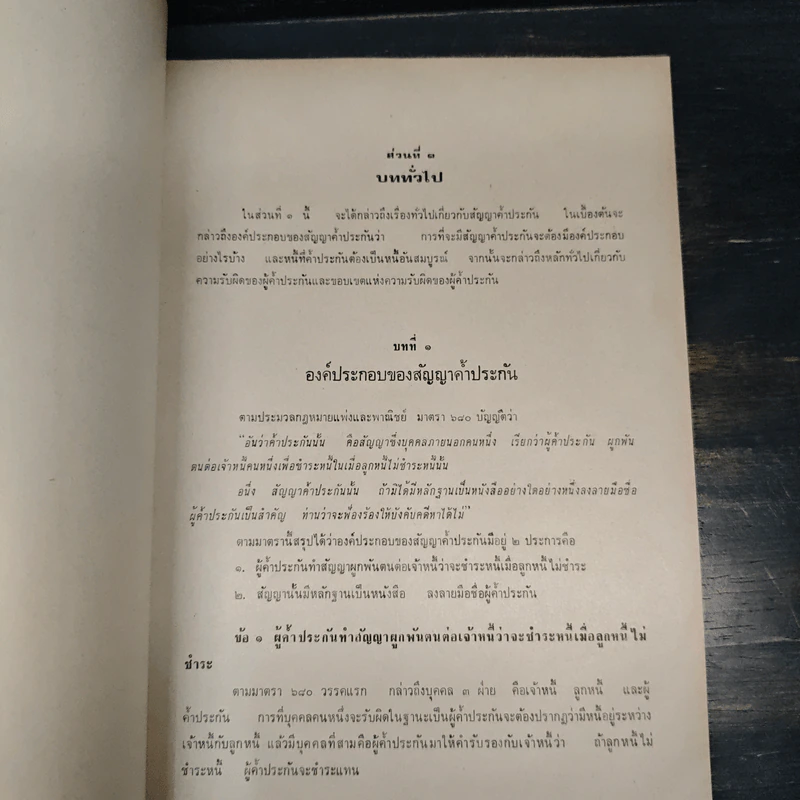 ส่วนที่ ๑
บททั่วไป
ในส่วนที่ ๑ นี้ จะได้กล่าวถึงเรื่องทั่วไปเกี่ยวกับสัญญาค้ำประกัน ในเบื้องต้นจะ
กล่าวถึงองค์ประกอบของสัญญาค้ำประกันว่า การที่จะมีสัญญาค้ำประกันจะต้องมีองค์ประกอบ
อย่างไรบ้าง และหนี้ที่ค้ำประกันต้องเป็นหนี้อันสมบูรณ์ จากนั้นจะกล่าวถึงหลักทั่วไปเกี่ยวกับ
ความรับผิดของผู้ค้ำประกันและขอบเขตแห่งความรับผิดของผู้ค้ำประกัน
บทที่ ๑
องค์ประกอบของสัญญาค้ำประกัน
ตามประมวลกฎหมายแพ่งและพาณิชย์ มาตรา ๖๘๐ บัญญัติว่า
"อันว่าค้ำประกันนั้น คือสัญญาซึ่งบุคคลภายนอกคนหนึ่ง เรียกว่าผู้ค้ำประกัน ผูกพัน
ตนต่อเจ้าหนี้คนหนึ่งเพื่อชำระหนี้ในเมื่อลูกหนี้ไม่ชำระหนี้นั้น
อนึ่ง สัญญาค้ำประกันนั้น ถ้ามิได้มีหลักฐานเป็นหนังสืออย่างใดอย่างหนึ่งลงลายมือชื่อ
ผู้ค้ำประกันเป็นสำคัญ ท่านว่าจะฟ้องร้องให้บังคับคดีหาได้ไม่"
ตามมาตรานี้สรุปได้ว่าองค์ประกอบของสัญญาค้ำประกันมีอยู่ ๒ ประการคือ
๑. ผู้ค้ำประกันทำสัญญาผูกพันตนต่อเจ้าหนี้ว่าจะชำระหนี้เมื่อลูกหนี้ไม่ชำระ
๒. สัญญานั้นมีหลักฐานเป็นหนังสือ ลงลายมือชื่อผู้ค้ำประกัน
ข้อ ๑ ผู้ค้ำประกันทำสัญญาผูกพันตนต่อเจ้าหนี้ว่าจะชำระหนี้เมื่อลูกหนี้ไม่
ชำระ
ตามมาตรา ๖๘๐ วรรคแรก กล่าวถึงบุคคล ๓ ฝ่าย คือเจ้าหนี้ ลูกหนี้ และผู้
ค้ำประกัน การที่บุคคลคนหนึ่งจะรับผิดในฐานะเป็นผู้ค้ำประกันจะต้องปรากฏว่ามีหนี้อยู่ระหว่าง
เจ้าหนี้กับลูกหนี้ แล้วมีบุคคลที่สามคือผู้ค้ำประกันมาให้คำรับรองกับเจ้าหนี้ว่า ถ้าลูกหนี้ไม่
ชำระหนี้ ผู้ค้ำประกันจะชำระแทน